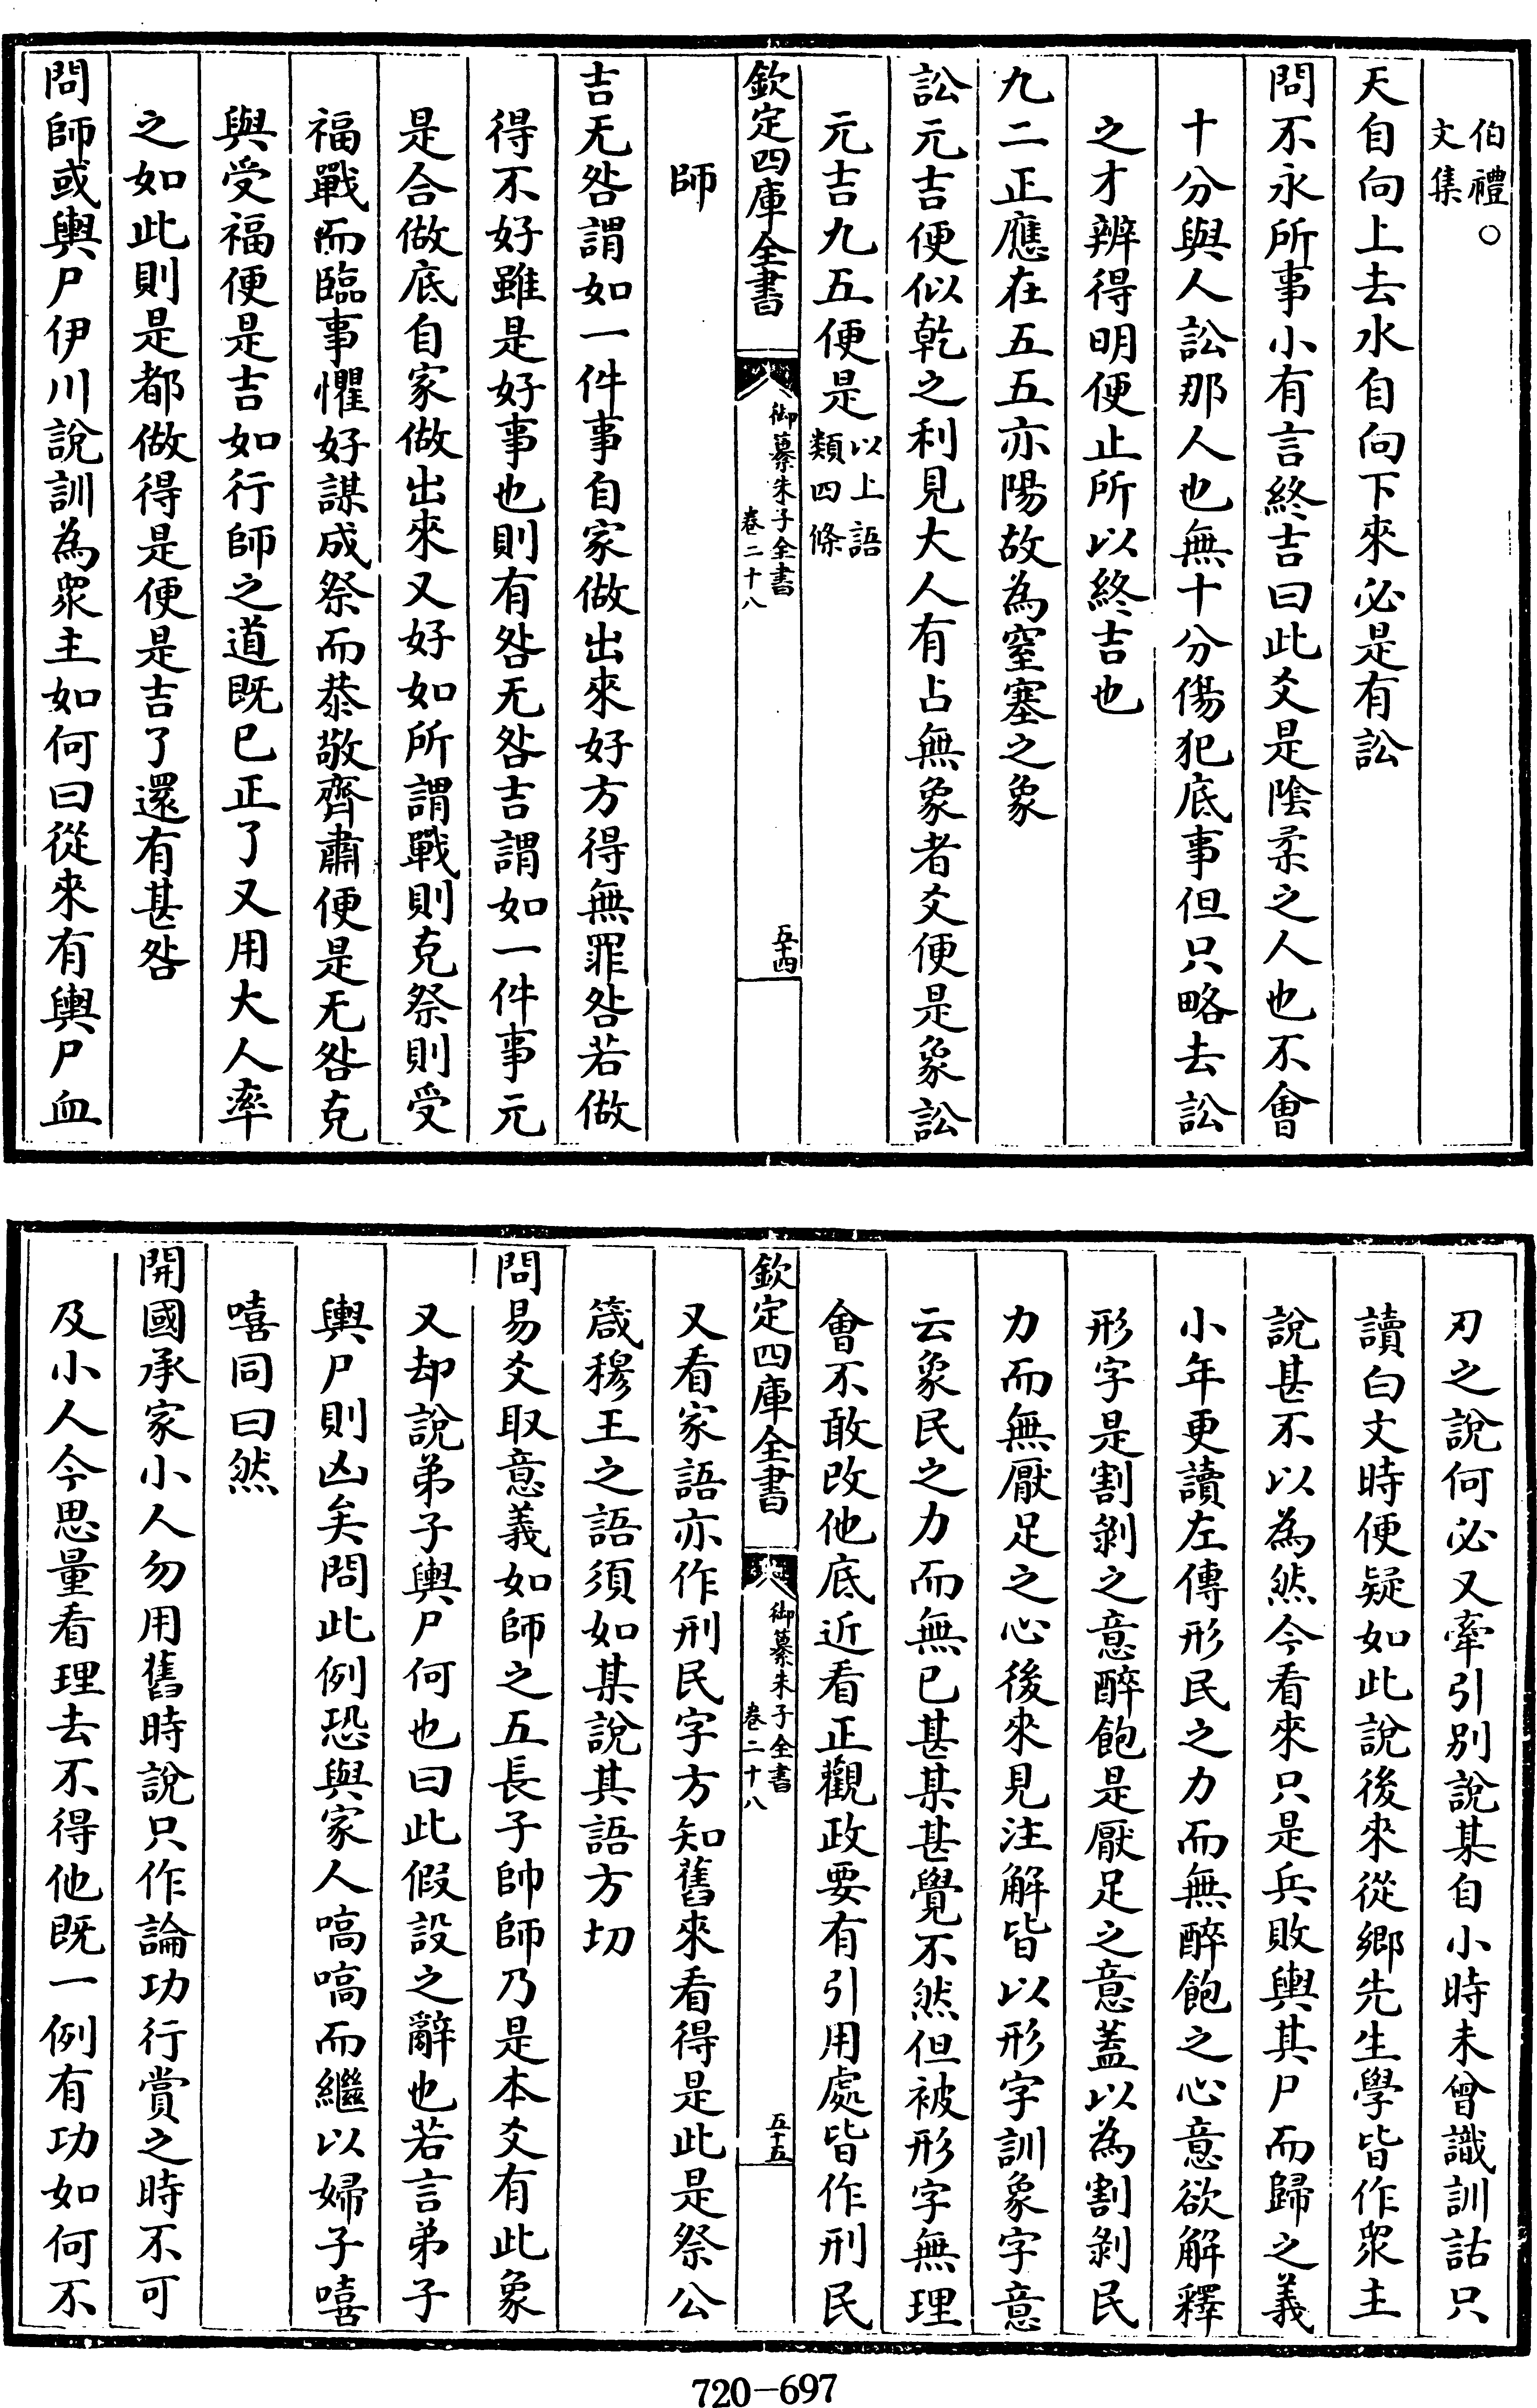 伯禮○
文集
天自向上去水自向下來必是有訟
問不永所事小有言終吉曰此爻是陰柔之人也不會
十分與人訟那人也無十分傷犯底事但只略去訟
之才辨得明便止所以終吉也
九二正應在五五亦陽故為窒塞之象
訟元吉便似乾之利見大人有占無象者爻便是象訟
元吉九五便是以上語
類四條
欽定四庫全書
御纂朱子全書
卷二十八
五十四
師
吉无咎謂如一件事自家做出來好方得無罪咎若做
得不好雖是好事也則有咎无咎吉謂如一件事元
是合做底自家做出來又好如所謂戰則克祭則受
福戰而臨事懼好謀成祭而恭敬齊肅便是无咎克
與受福便是吉如行師之道既已正了又用大人率
之如此則是都做得是便是吉了還有甚咎
問師或輿尸伊川說訓為衆主如何曰從來有輿尸血
刃之說何必又牽引別說某自小時未曾識訓詁只
讀白文時便疑如此說後來從鄉先生學皆作衆主
說甚不以為然今看來只是兵敗輿其尸而歸之義
小年更讀左傳形民之力而無醉飽之心意欲解釋
形字是割剝之意醉飽是厭足之意蓋以為割剝民
力而無厭足之心後來見注解皆以形字訓象字意
云象民之力而無已甚某甚覺不然但被形字無理
會不敢改他底近看正觀政要有引用處皆作刑民
欽定四庫全書
御纂朱子全書
卷二十八
五十五
又看家語亦作刑民字方知舊來看得是此是祭公
箴穆王之語須如某說其語方切
問易爻取意義如師之五長子帥師乃是本爻有此象
又却說弟子輿尸何也曰此假設之辭也若言弟子
輿尸則凶矣問此例恐與家人嗃嗃而繼以婦子嘻
嘻同曰然
開國承家小人勿用舊時說只作論功行賞之時不可
及小人今思量看理去不得他既一例有功如何不
720-697